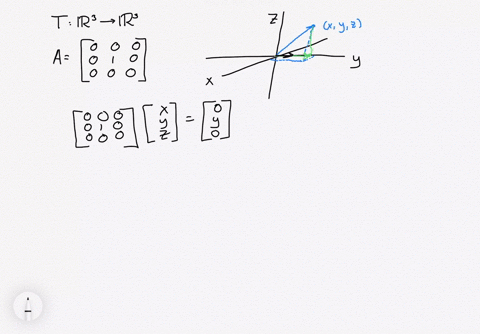 T: ℝ³ → ℝ³
A = [0 0 0
0 1 0
0 0 0]
z
(x, y, z)
y
x
[0 0 0
0 1 0
0 0 0] [x
y
z] = [0
y
0]